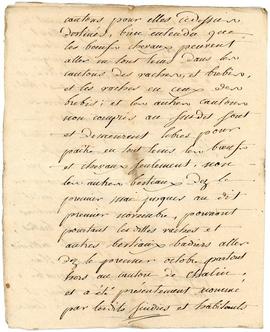 cantons pour elles cÿdessus
destinés, bien entendu que
les boeufs chevaux peuvent
aller en tout tems dans les
cantons des vaches et brebis,
et les vaches en ceux des
brebis; et les autres cantons
non compris au susdit sont
et demeurent libres pour
paître en tout tems les boeufs
et chevaux seulement; non
les autres bestiaux dez le
premier mai jusques au dit
premier novembre, pouvant
pourtant lesdites vaches et
autres bestiaux aller
dez le premier octobre partout
hors au canton de
et a été présentement nommé
par lesdits sindics et habitants